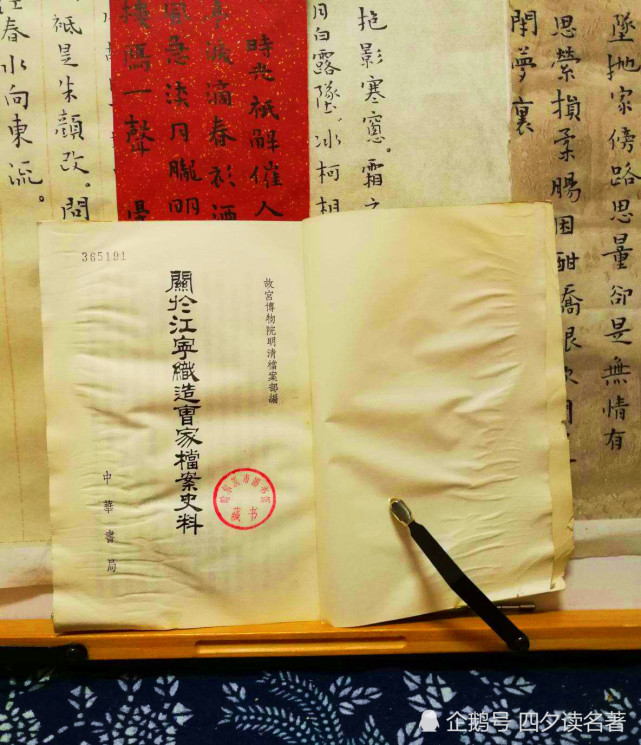 墜抛家傍路思量卻是無情有
思縈損柔腸困酣嬌眼欲開
夢
抱影寒窗。霜
月白露墜。冰柯相
時光祇解催人
淚滴春衫酒
風急淡月朧明
樓雁一聲
祇是朱顏改。問
江春水向東流。
365191
故宮博物院明清檔案部編
關於江寧織造曹家檔案史料
中華書局
藏书
企鹅号 四夕读名著